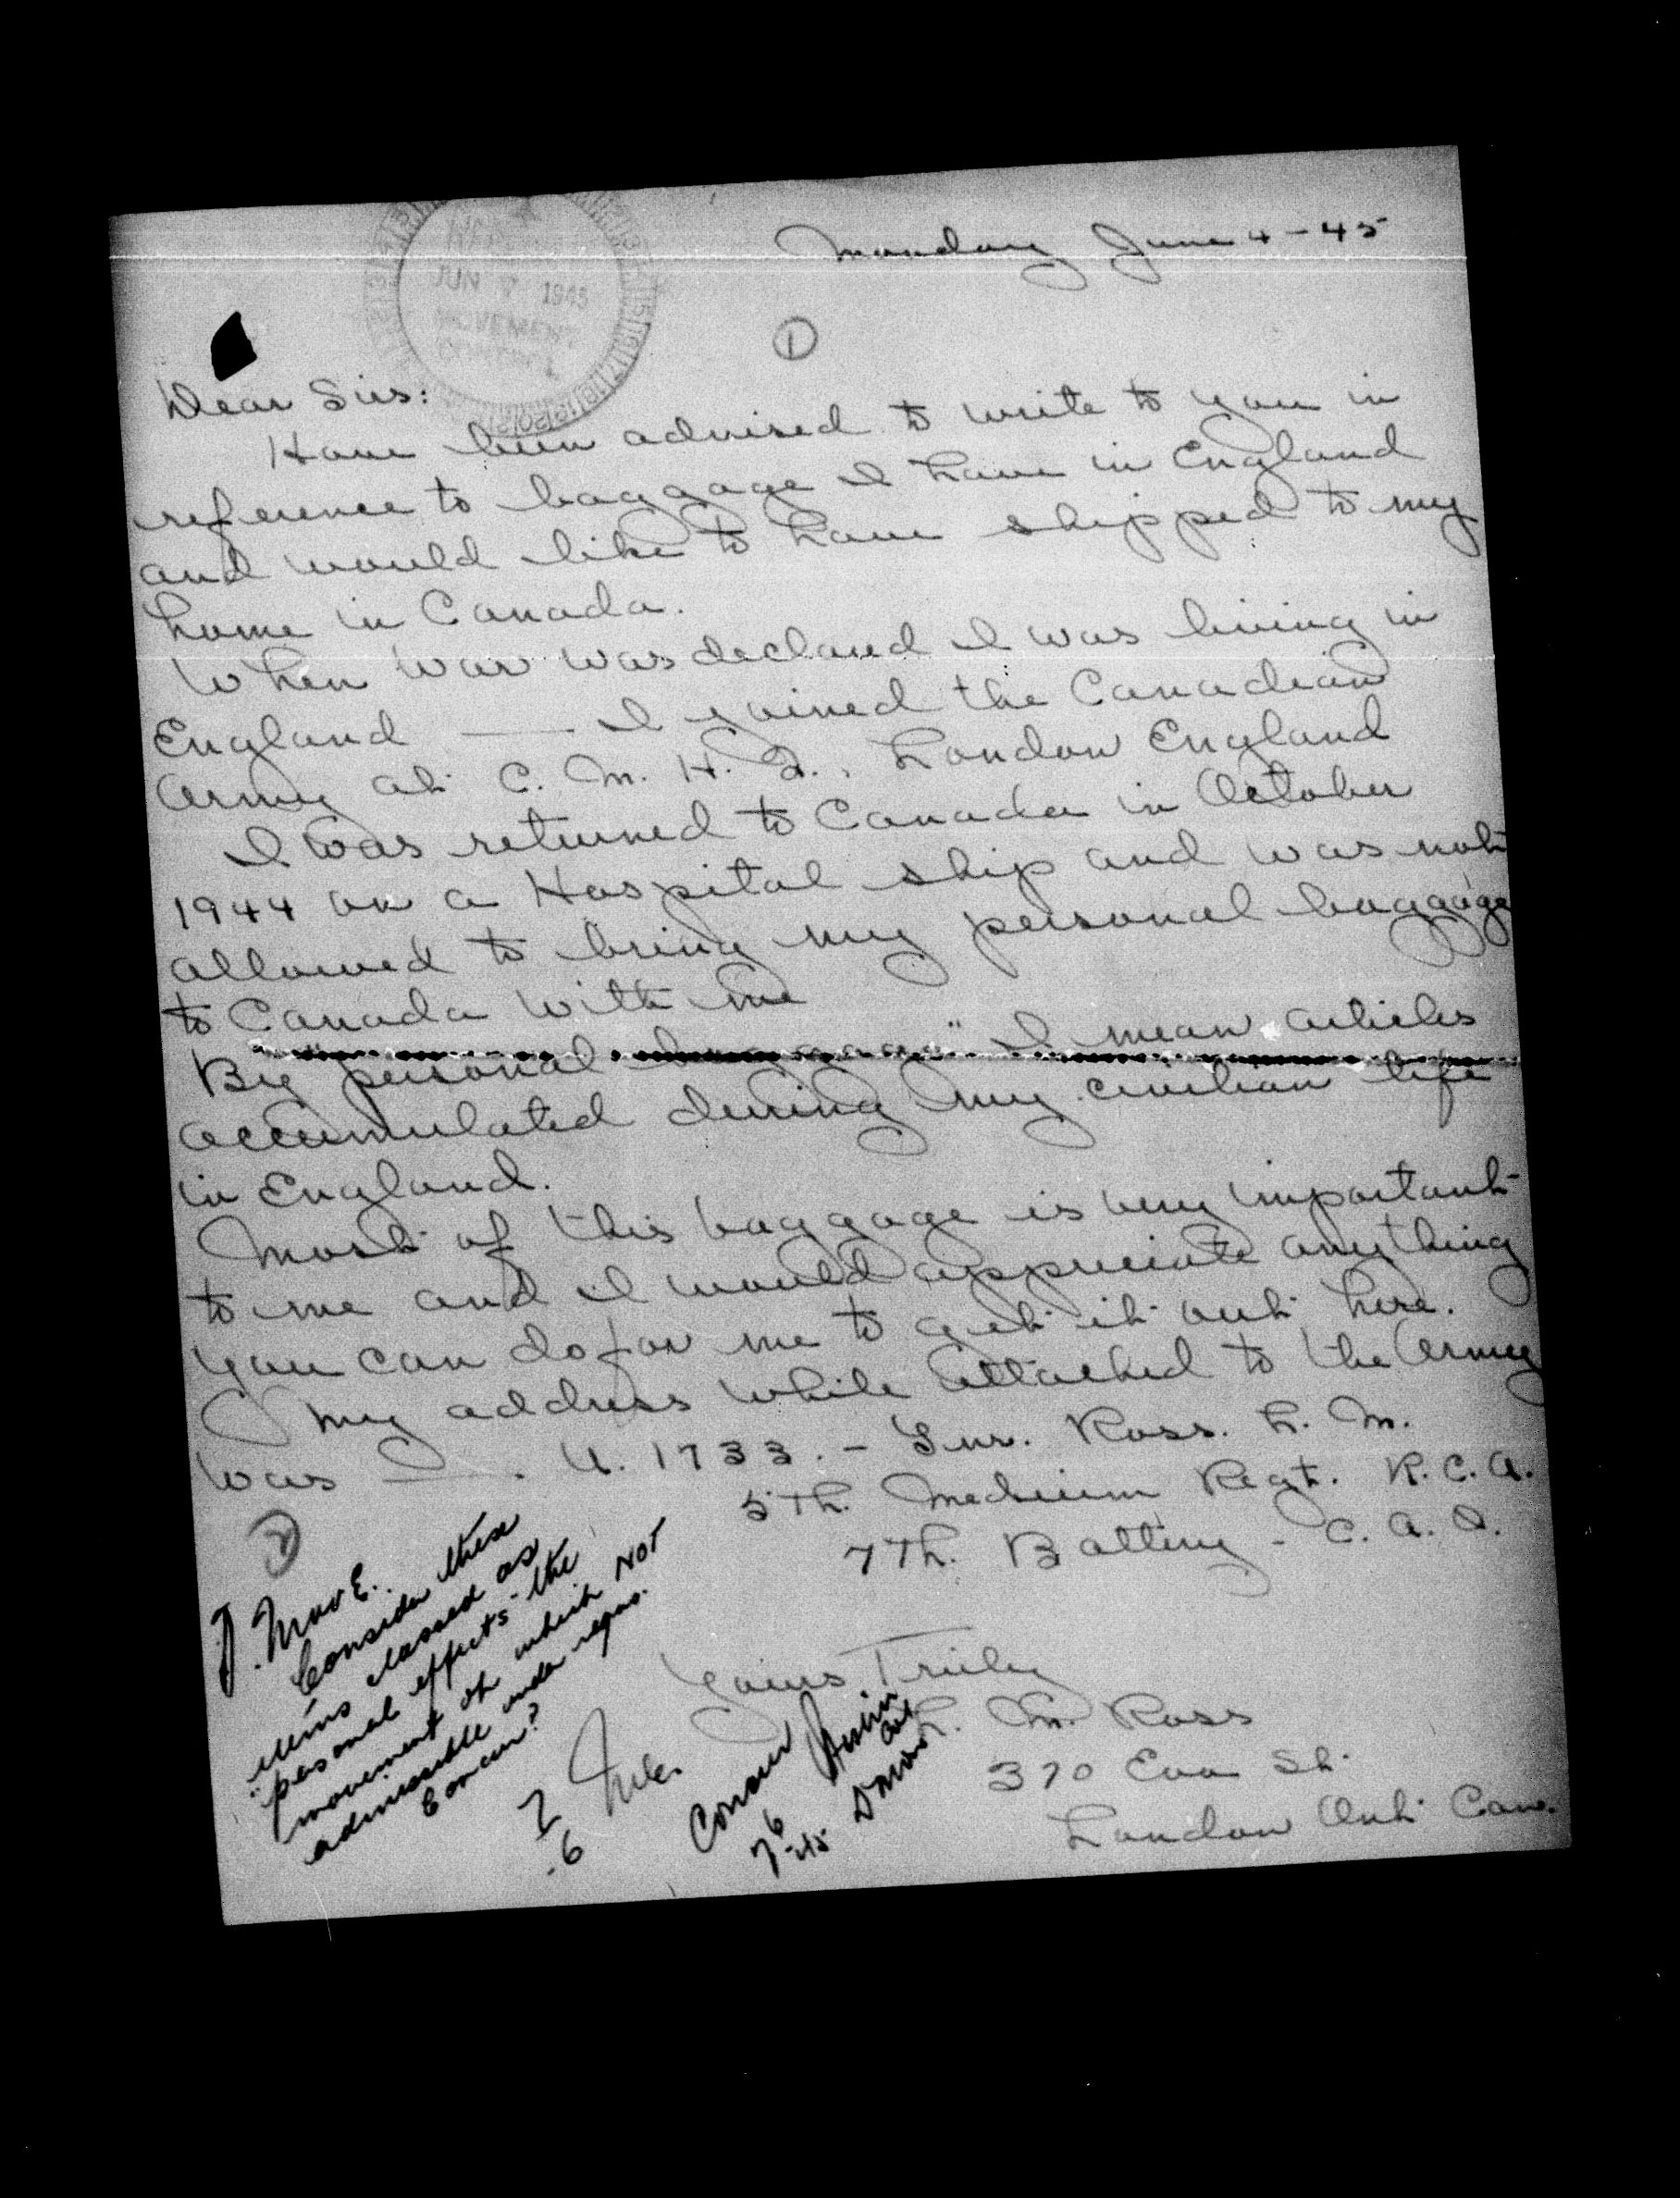 Monday June 4-45
JUN 7 1945
MOVEMENT
CONTROL
1
Dear Sirs:
Have been advised to write to you in
reference to baggage I have in England
and would like to have shipped to my
home in Canada.
When war was declared I was living in
England — I joined the Canadian
Army at C. M. H. Q., London England
I was returned to Canada in October
1944 on a Hospital ship and was not
allowed to bring my personal baggage
to Canada with me
By personal baggage" I mean articles
accumulated during my civilian life
in England.
Most of this baggage is very important
to me and I would appreciate anything
you can do for me to get it out here.
My address while attached to the Army
was — . U. 1733. - Gnr. Ross. L. M.
5th. Medium Regt. R.C.A.
7th. Battery - C. A. O.
Yours Truly
L. M. Ross
370 Eva St.
London Ont. Can.
2
D. Mov E.
Consider these
items classed as
"personal effects" the
movement of which NOT
admissable under regns.
Concur?
7
.6
Concur
7/6-45